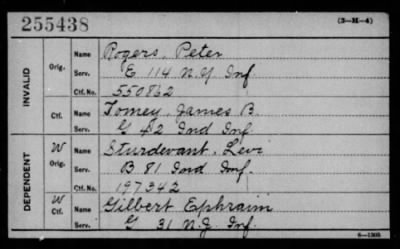 255438 (3-M-4)
INVALID
Orig.
Name Rogers, Peter
Serv. E 114 N.Y Inf.
Ctf. No. 550862
Ctf.
Name Tomey, James B.
Serv. G 42 Ind Inf
DEPENDENT
W
Orig.
Name Sturdevant, Levi
Serv. B 81 Ind Inf.
Ctf. No. 197342
W
Ctf.
Name Gilbert Ephraim
Serv. G 31 N.J. Inf.